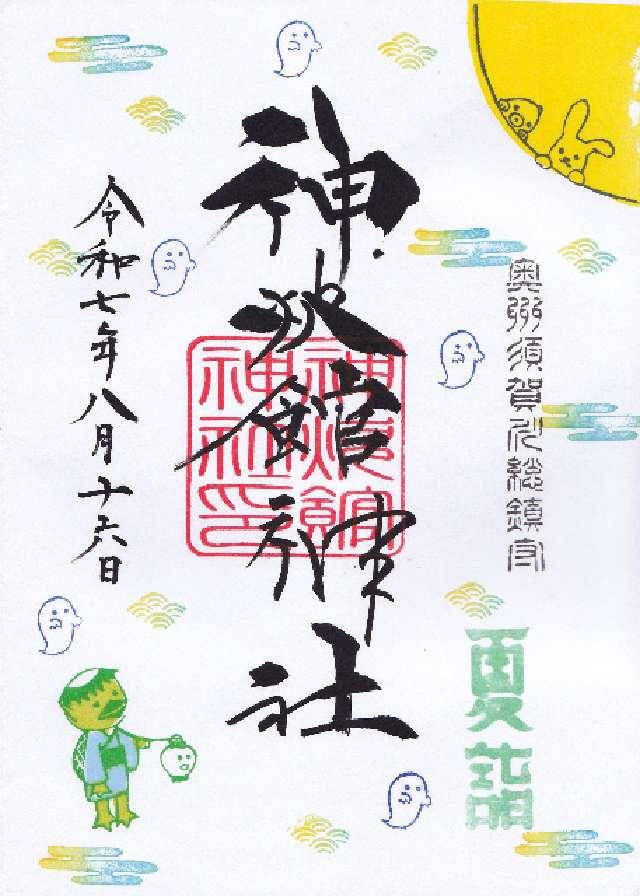 奥州須賀川総鎮守
夏詣
神炊館神社
神炊館
神社印
令和七年八月十六日